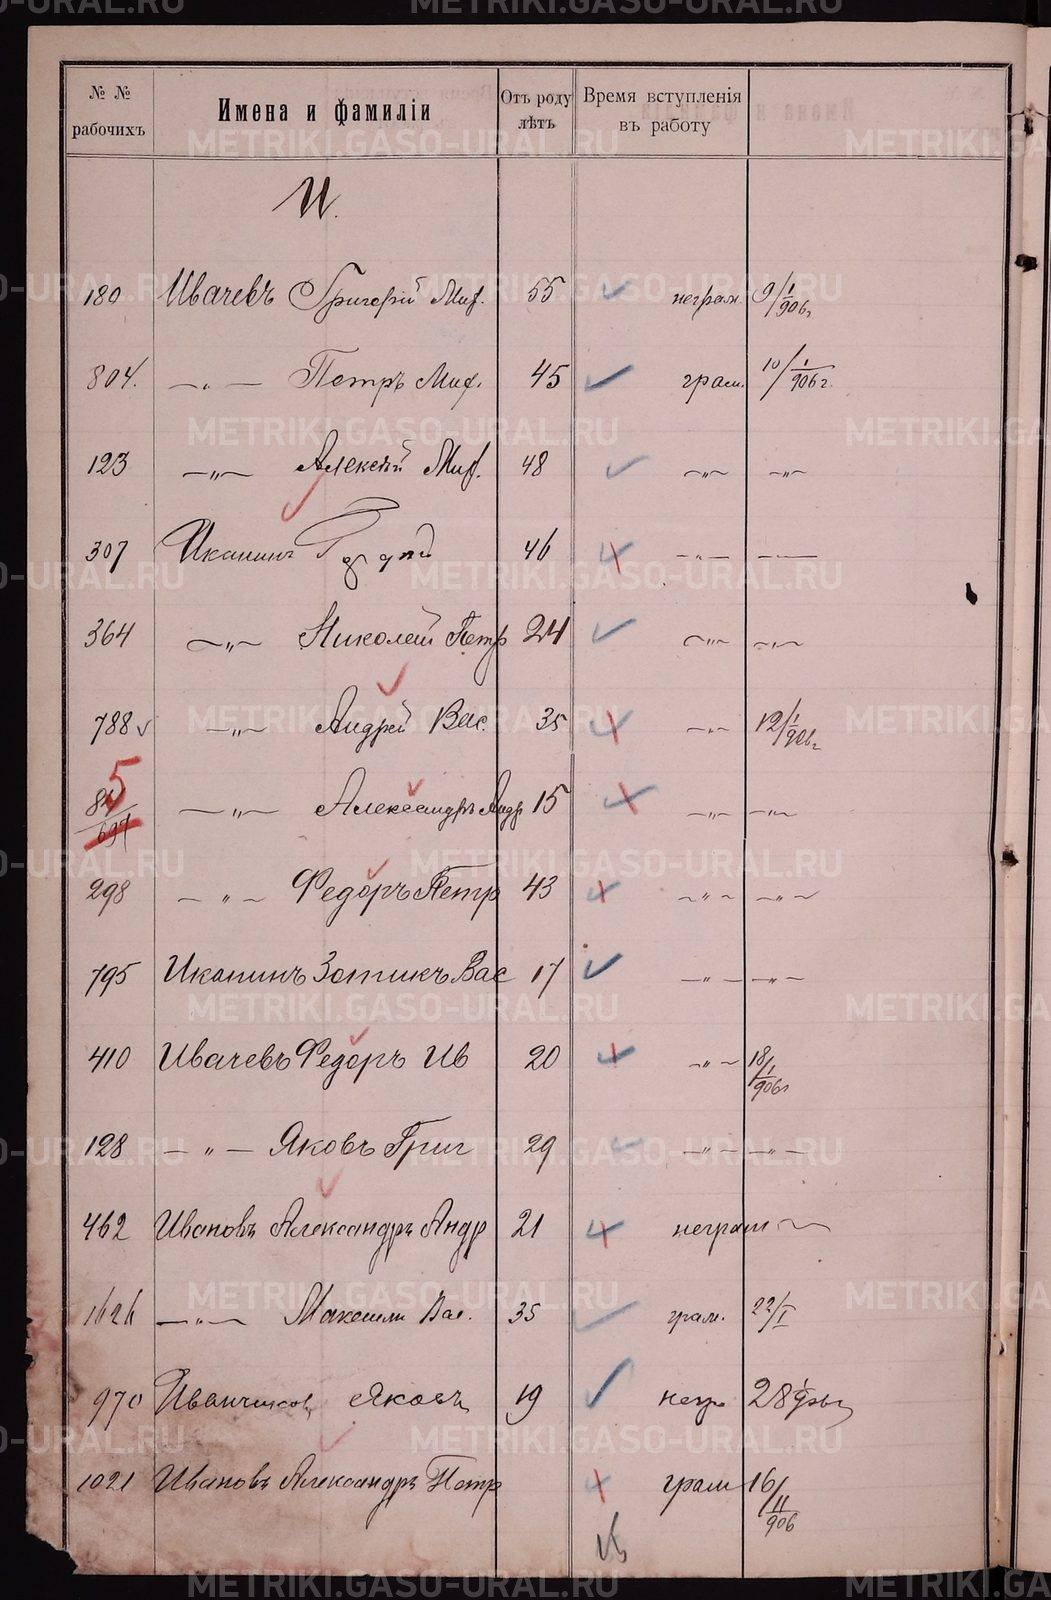 № № рабочихъ Имена и фамиліи Отъ роду лѣтъ Время вступленія въ работу
И.
180 Ивачевъ Григорій Мих. 55 неграм. 9/I 906г
804. —„— Петръ Мих. 45 грам. 10/I 906г.
123 —„— Алексѣй Мих. 48 —„— —„—
307 Иканинъ 46 —„— —
364 —„— Николай Петр 24 —„— —„—
788 —„— Андрей Вас. 35 —„— 12/I 906г
5
697 —„— Александръ Андр 15 —„— —„—
298 —„— Федоръ Петр 43 —„— —„—
795 Иканинъ Зотикъ Вас 17 —„— —„—
410 Ивачевъ Федоръ Ив 20 —„— 18/I 906г
128 —„— Яковъ Григ 29 —„— —„—
462 Ивановъ Александръ Андр 21 неграм
1626 —„— Максим Вас. 35 грам. 22/I
970 Яковъ 19 негр 28
1021 Ивановъ Александръ Петр грам 16/II 906
METRIKI.GASO-URAL.RU